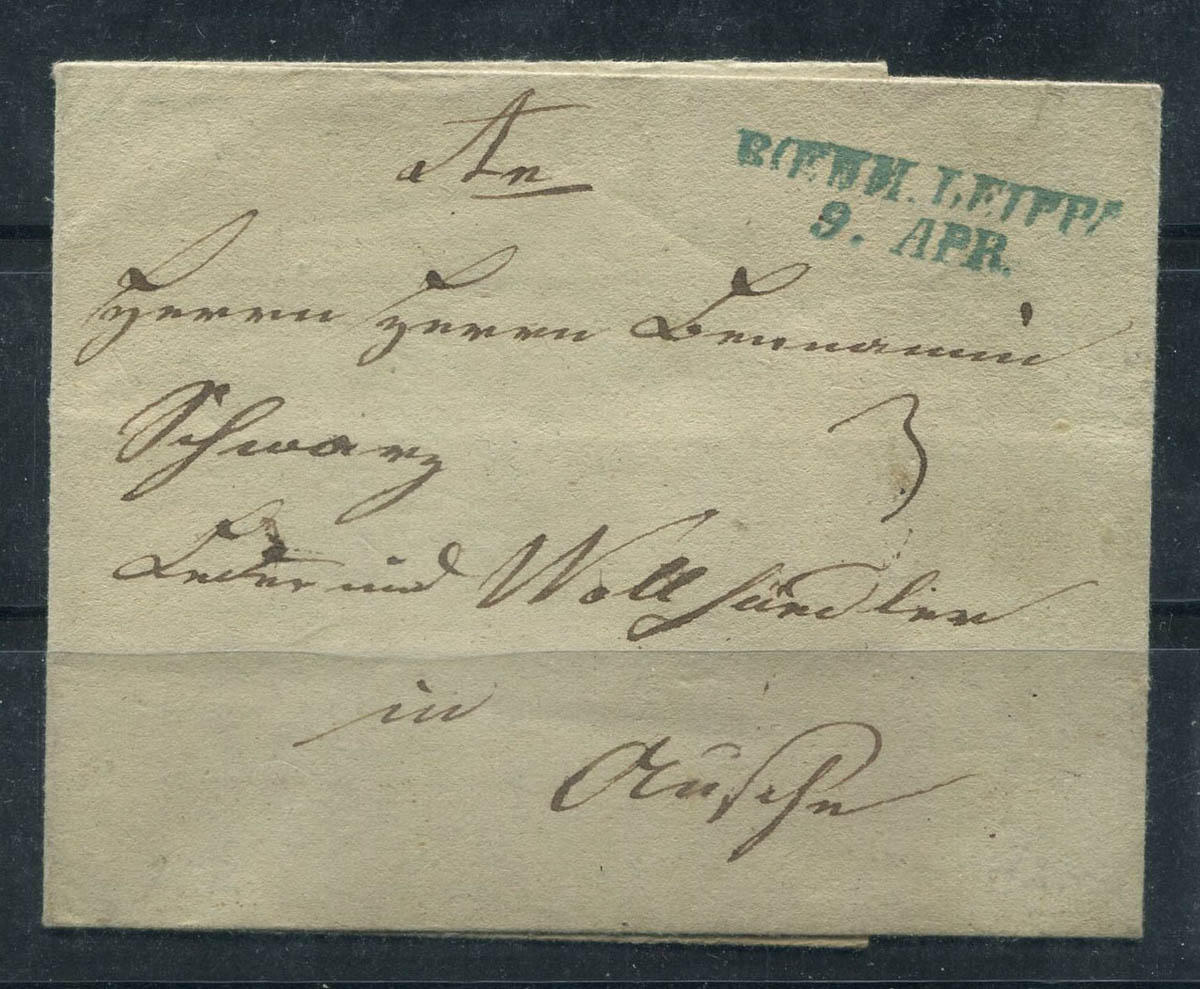 An
BOEHM. LEIPPA
9. APR.
Herrn Herrn Bennamin
Schwarz
3
Leder und Wollhändler
in
Ausche